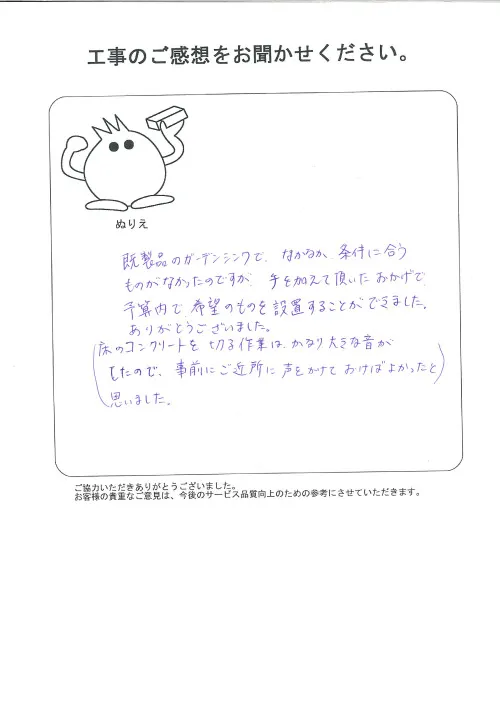 工事のご感想をお聞かせください。
ぬりえ
既製品のガーデンシンクで、なかなか、条件に合う
ものがなかったのですが 手を加えて頂いたおかげで
予算内で、希望のものを設置することができました。
ありがとうございました。
(床のコンクリートを切る作業は、かなり大きな音が
したので、事前にご近所に声をかけておけばよかったと
思いました。)
ご協力いただきありがとうございました。
お客様の貴重なご意見は、今後のサービス品質向上のための参考にさせていただきます。